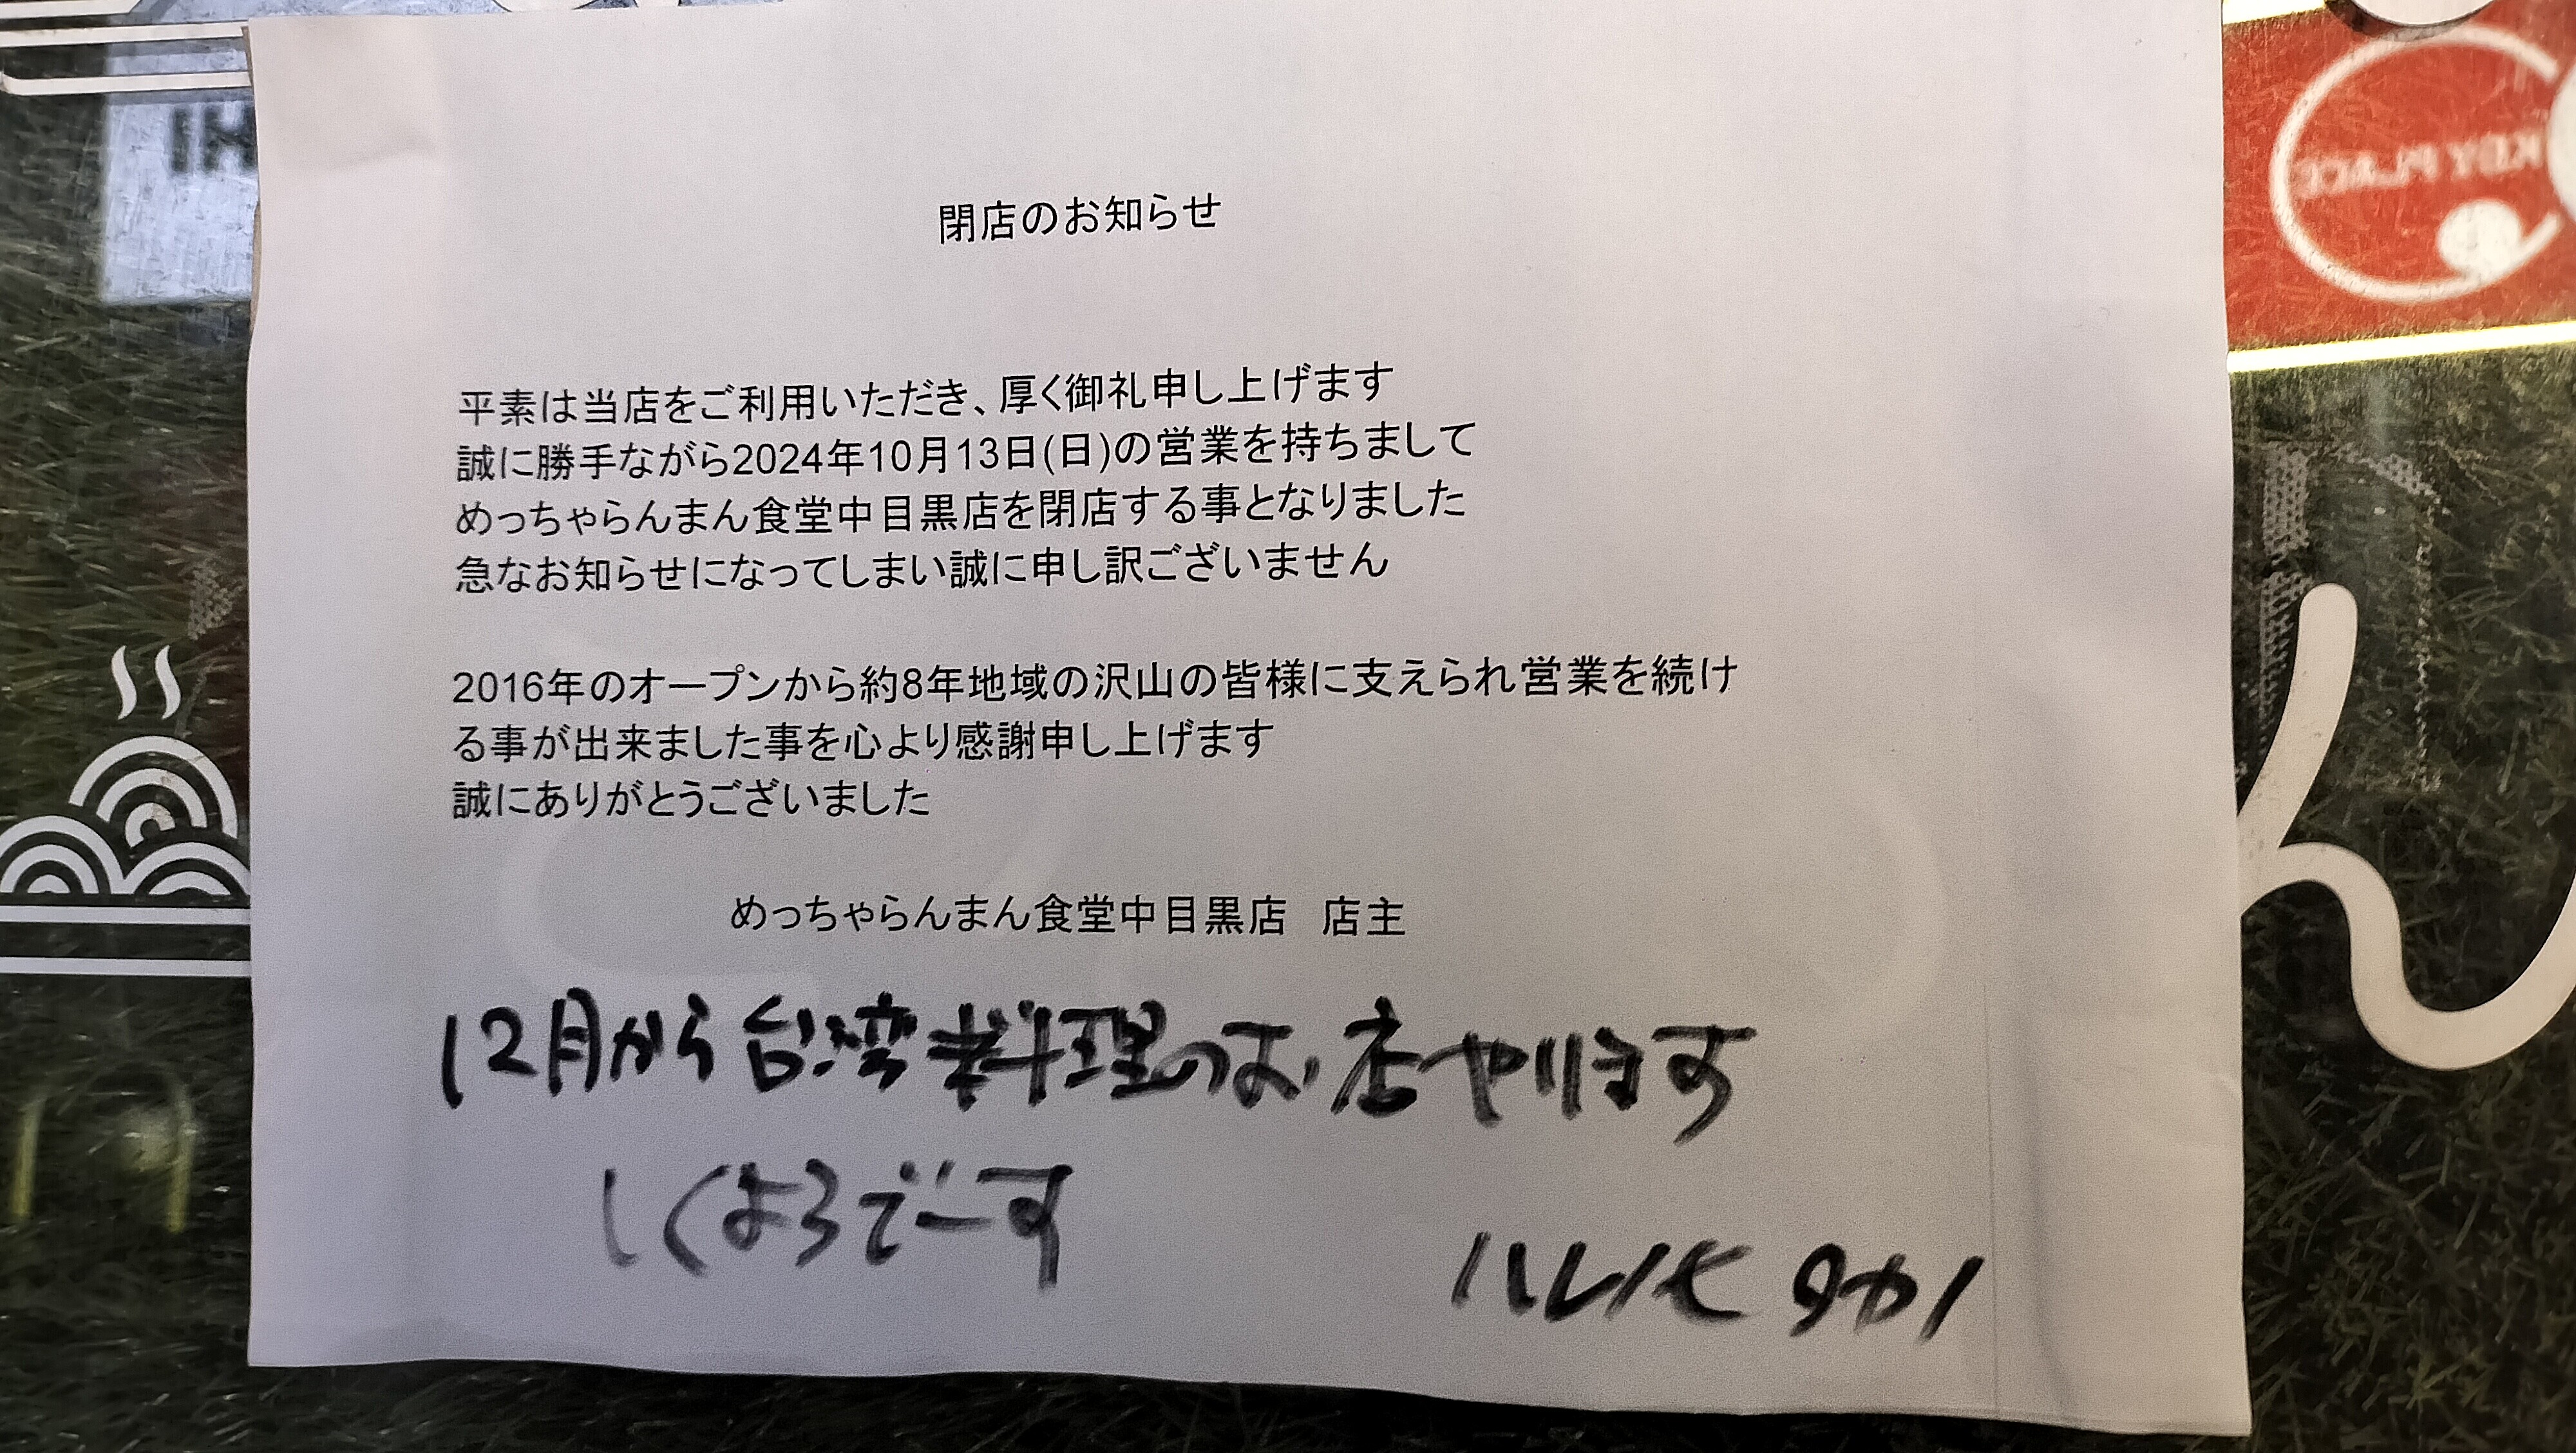 閉店のお知らせ
平素は当店をご利用いただき、厚く御礼申し上げます
誠に勝手ながら2024年10月13日(日)の営業を持ちまして
めっちゃらんまん食堂中目黒店を閉店する事となりました
急なお知らせになってしまい誠に申し訳ございません
2016年のオープンから約8年地域の沢山の皆様に支えられ営業を続け
る事が出来ました事を心より感謝申し上げます
誠にありがとうございました
めっちゃらんまん食堂中目黒店　店主
12月から台湾料理のお店やります
しくよろでーす